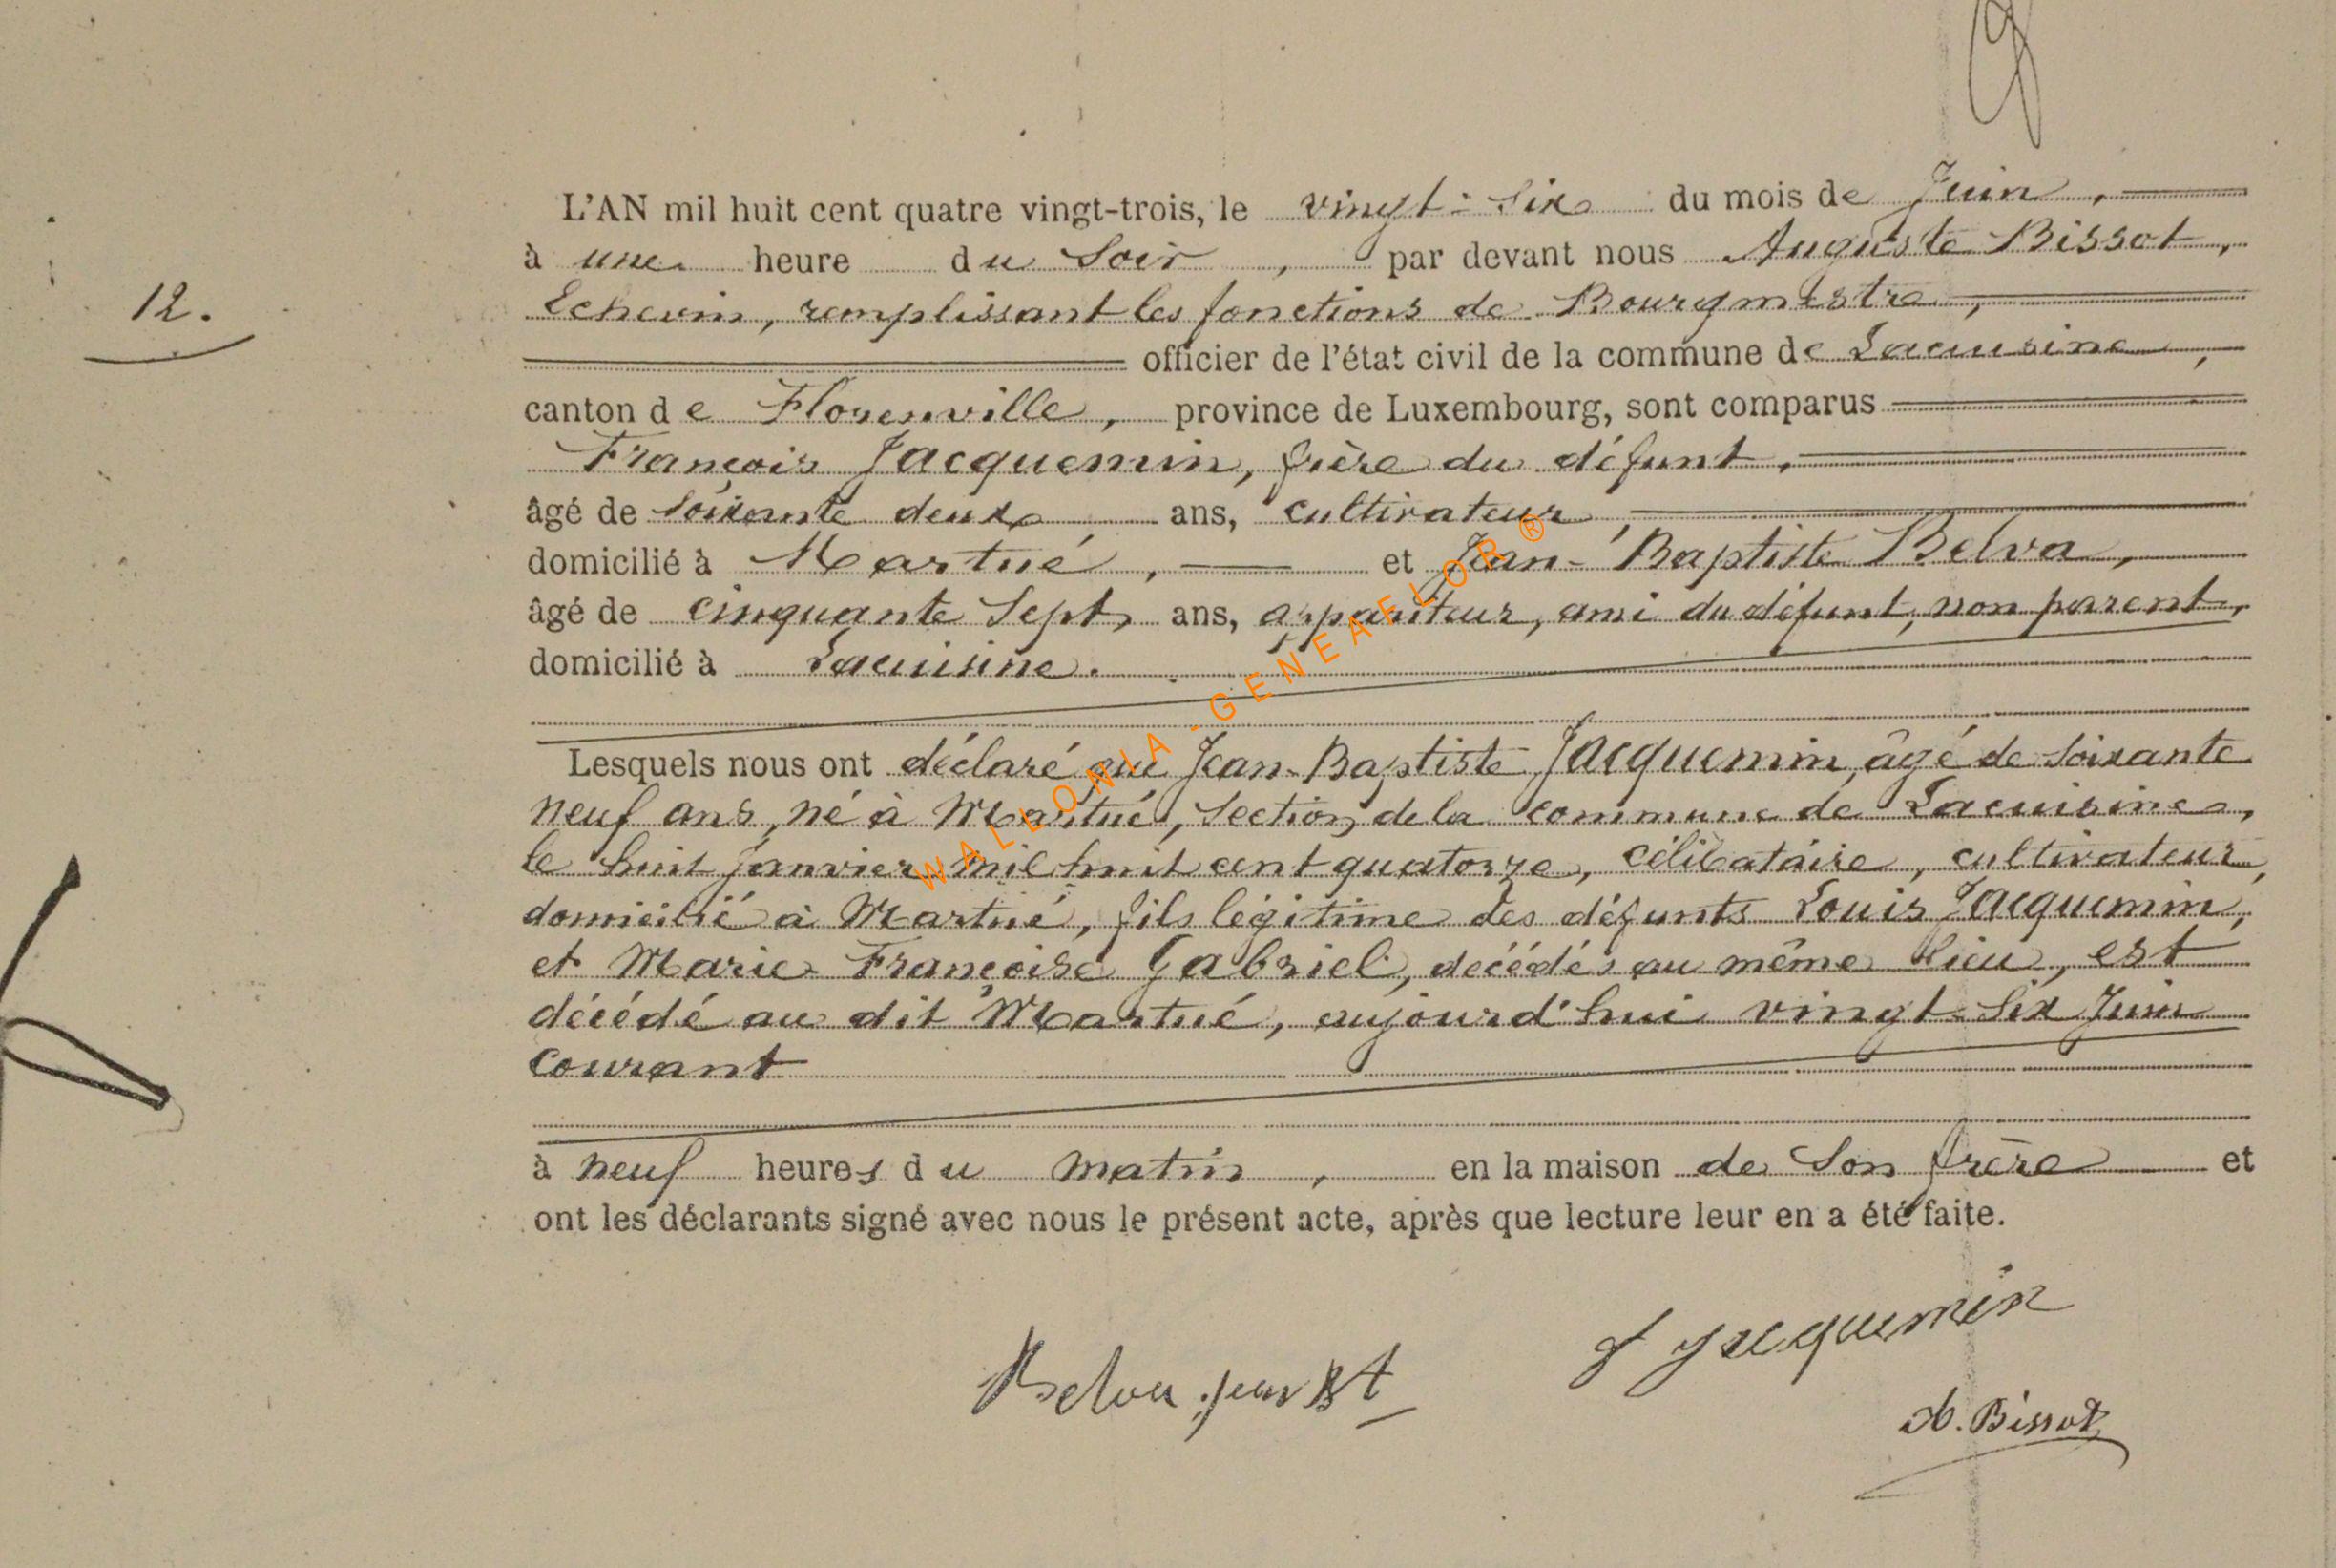 12.
L'AN mil huit cent quatre vingt-trois, le vingt-six du mois de Juin,
à une heure du Soir, par devant nous Auguste Bissot,
Echevin, remplissant les fonctions de Bourgmestre,
officier de l'état civil de la commune de Lacuisine,
canton de Florenville, province de Luxembourg, sont comparus
François Jacquemin, frère du défunt,
âgé de soixante deux ans, cultivateur,
domicilié à Martué, et Jean-Baptiste Belva,
âgé de cinquante Sept ans, appariteur, ami du défunt, non parent,
domicilié à Lacuisine.
Lesquels nous ont déclaré que Jean-Baptiste Jacquemin, âgé de soixante
neuf ans, né à Martué, Section de la commune de Lacuisine,
le huit janvier mil huit cent quatorze, célibataire, cultivateur,
domicilié à Martué, fils légitime des défunts Louis Jacquemin,
et Marie Françoise Gabriel, décédés au même lieu, est
décédé au dit Martué, aujourd'hui vingt-six Juin
courant
à neuf heures du matin, en la maison de Son frère et
ont les déclarants signé avec nous le présent acte, après que lecture leur en a été faite.
F Jacquemin
Belva jean Bt
A. Bissot
WALLONIA-GENEAFLOR ®